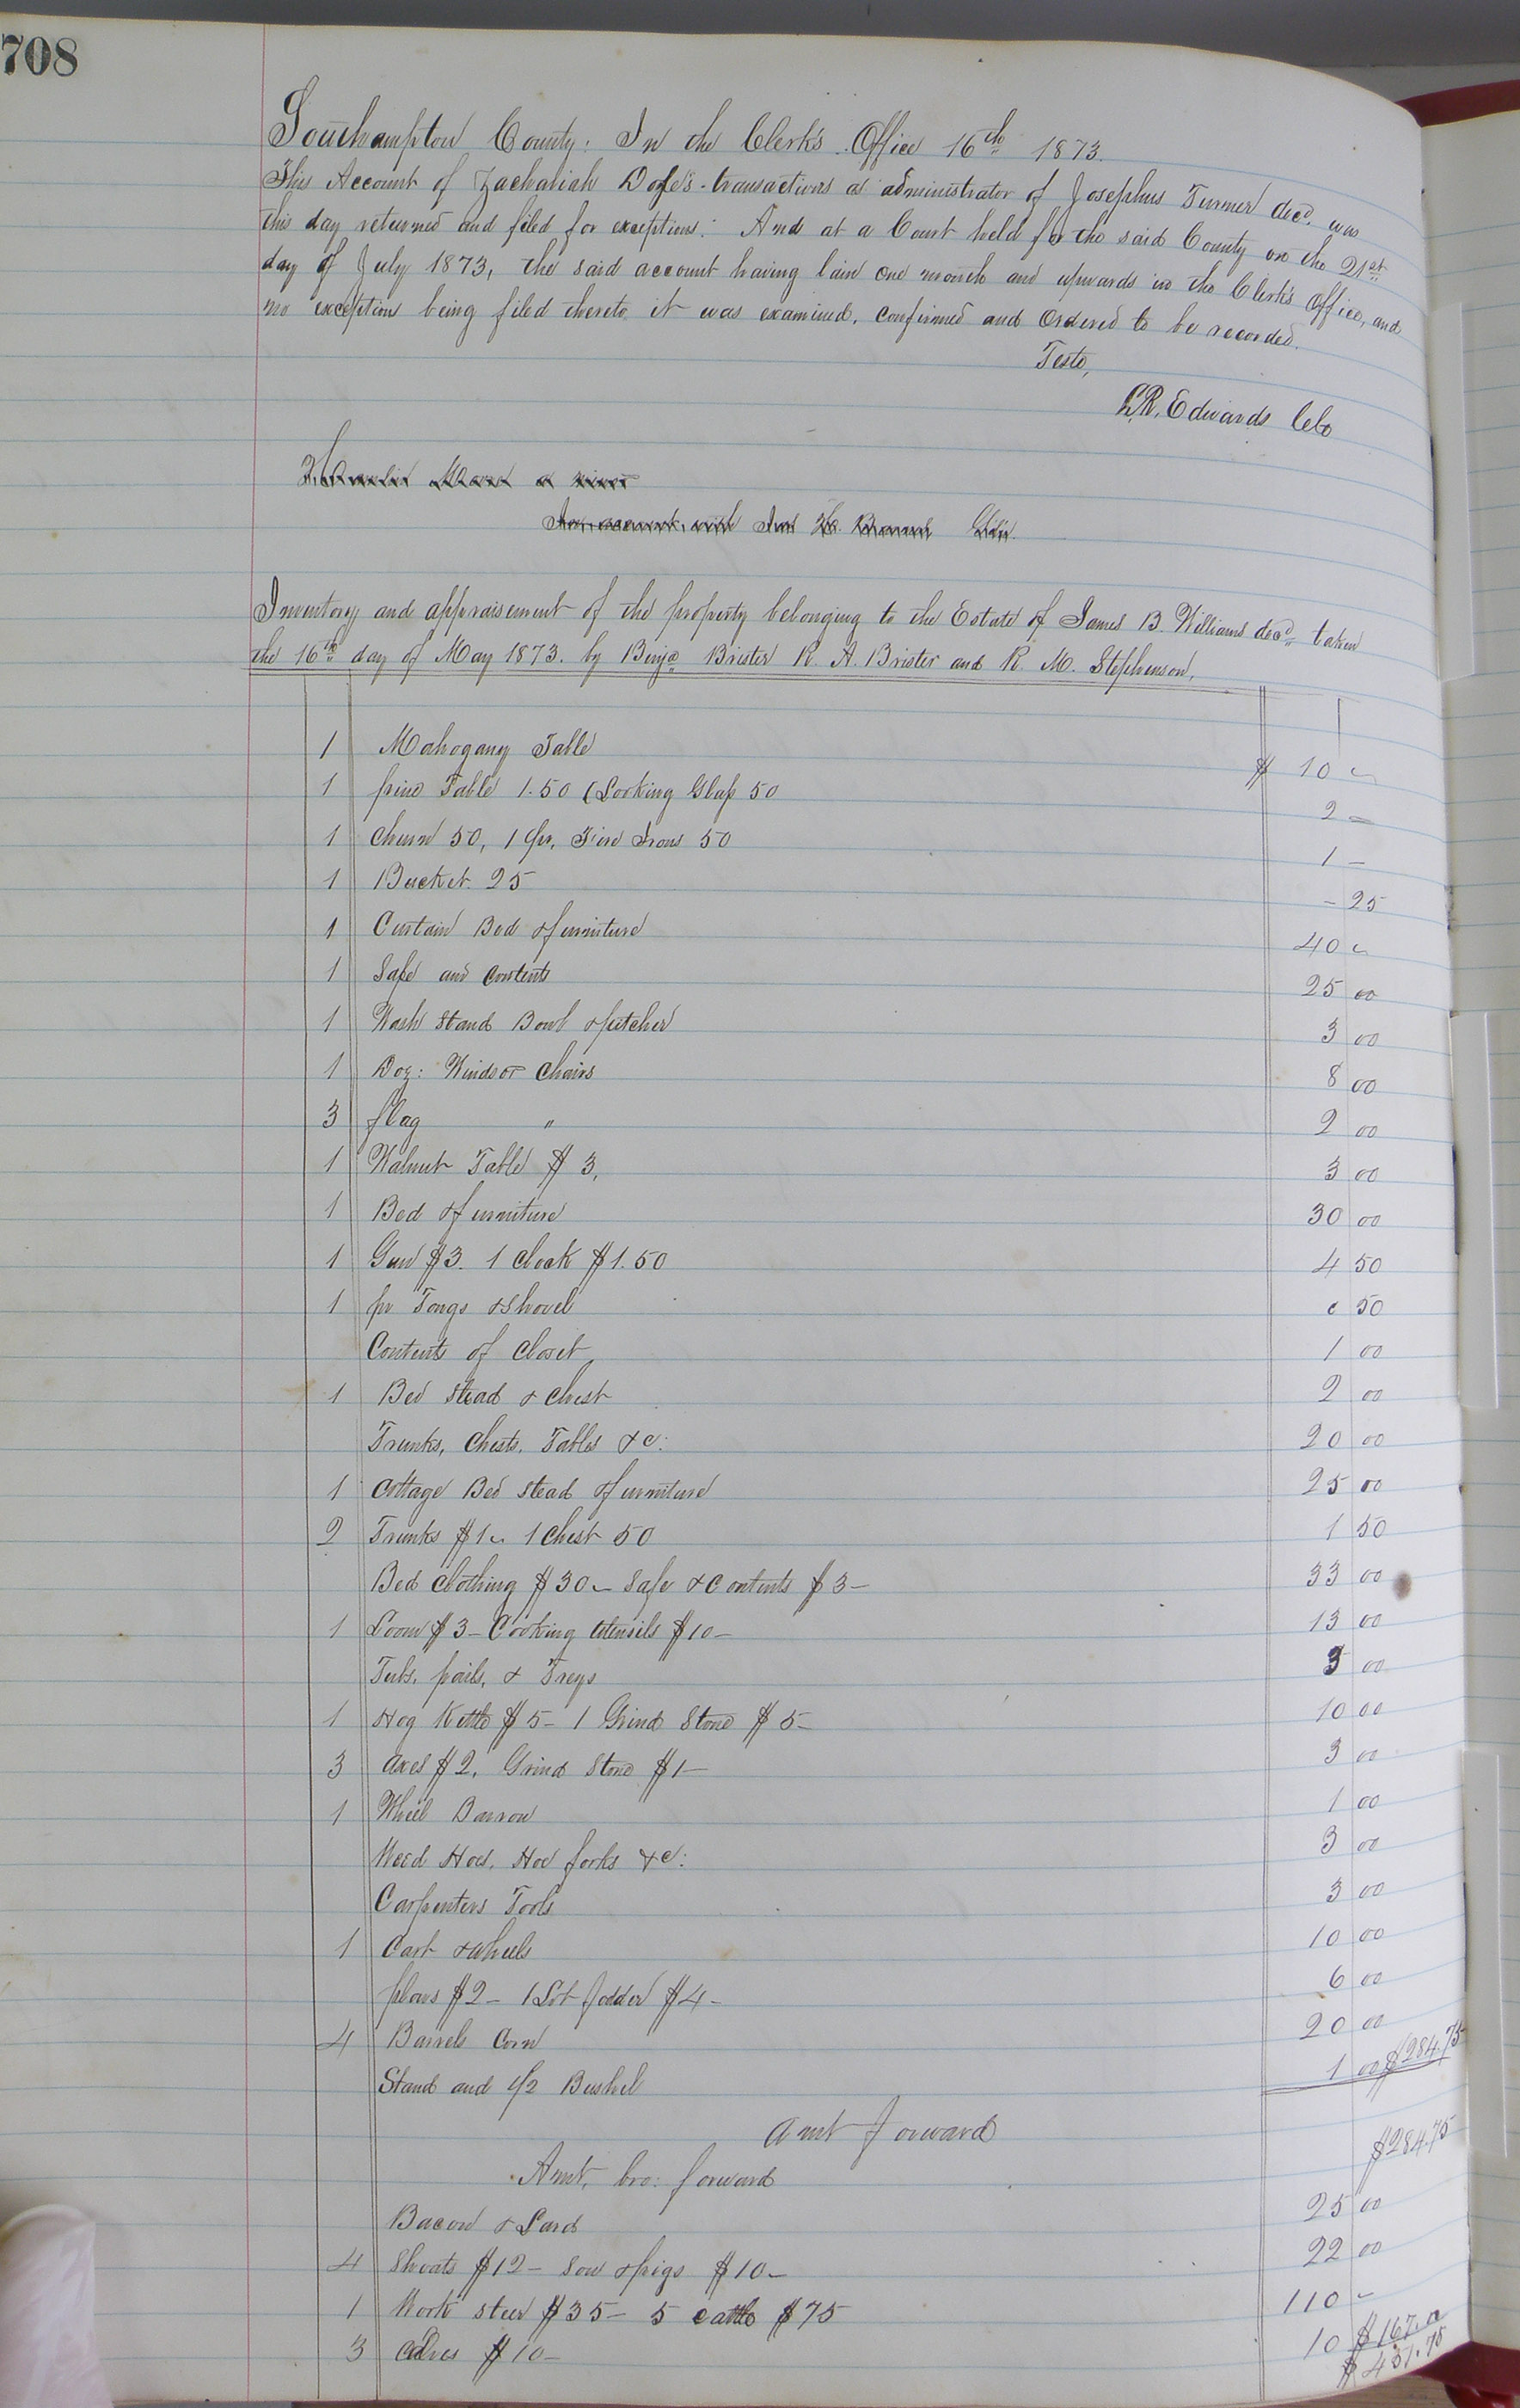 708
Southampton County: In the Clerk's Office 16th 1873.
This Account of Zachariah Doyle's transactions as administrator of Josephus Turner decd. was
this day returned and filed for exceptions: And at a Court held for the said County on the 21st
day of July 1873, the said account having lain one month and upwards in the Clerk's Office, and
no exceptions being filed thereto, it was examined, confirmed and ordered to be recorded.
Teste,
L.R. Edwards Clo
Inventory and appraisement of the property belonging to the Estate of James B. Williams decd. taken
the 16th day of May 1873. by Benja Brister R. A. Brister and R. M. Stephenson.
1 Mahogany Table $ 10 -
1 pine Table 1.50 (Looking Glass 50 2 -
1 Churn 50, 1 pr. Fire Irons 50 1 -
1 Bucket 25 - 25
1 Curtain Bed & furniture 40 -
1 Safe and Contents 25 00
1 Wash Stand Bowl & pitcher 3 00
1 Doz: Windsor Chairs 8 00
3 flag " 2 00
1 Walnut Table $ 3, 3 00
1 Bed & furniture 30 00
1 Gun $3. 1 Clock $1.50 4 50
1 pr Tongs & Shovel 50
Contents of Closet 1 00
1 Bed stead & Chest 2 00
Trunks, Chests, Tables &c: 20 00
1 Cottage Bed stead & furniture 25 00
2 Trunks $1 - 1 Chest 50 1 50
Bed Clothing $30 - Safe & Contents $3 - 33 00
1 Loom $3 - Cooking Utensils $10 - 13 00
Tubs, pails, & Treys 3 00
1 Hog Kettle $5 - 1 Grind Stone $5 - 10 00
3 Axes $2, Grind Stone $1 - 3 00
1 Wheel Barrow 1 00
Weed Hoes, Hoe forks &c: 3 00
Carpenters Tools 3 00
1 Cart & Wheels 10 00
plows $2 - 1 Lot fodder $4 - 6 00
4 Barrels Corn 20 00
Stand and 1/2 Bushel 1 00 $284.75
Amt forward
Amt, bro: forward $284.75
Bacon & Lard 25 00
4 Shoats $12 - Sow & pigs $10 - 22 00
1 Work steer $35 - 5 cattle $75 110 -
3 Calves $10 - 10 $167.00
$451.75